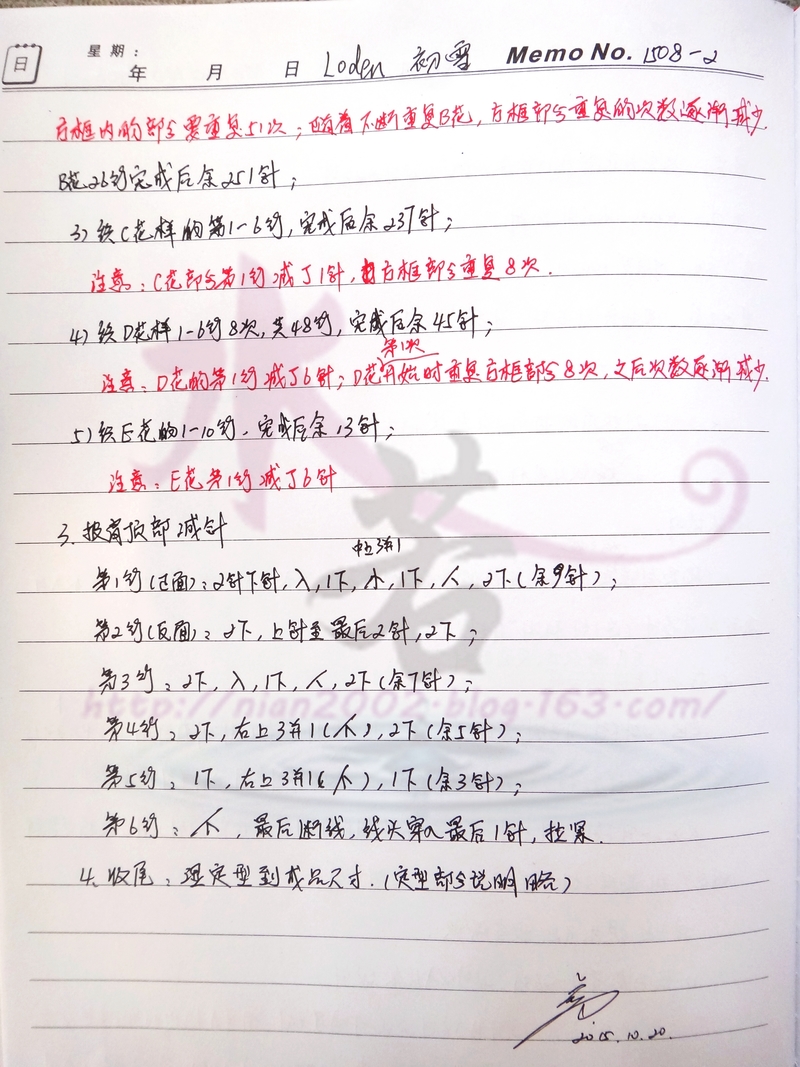 日 星期：
年 月 日 Loden 初雪 Memo No. 1508-2
方框内的部分要重复51次；随着不断重复B花，方框部分重复的次数逐渐减少.
B花26行完成后余251针；
3) 织C花样的第1-6行，完成后余237针；
注意：C花部分第1行减了1针，方框部分重复8次.
4) 织D花样1-6行8次，共48行，完成后余45针；
第1次
注意：D花的第1行减了6针；D花开始时重复方框部分8次，之后次数逐渐减少.
5) 织E花的1-10行.完成后余13针；
注意：E花第1行减了6针
3. 披肩顶部减针
中上3并1
第1行(正面)：2针下针，入，1下，小，1下，人，2下(余9针)；
第2行(反面)：2下，上针至最后2针，2下；
第3行：2下，入，1下，人，2下(余7针)；
第4行：2下，右上3并1(不)，2下(余5针)；
第5行：1下，右上3并1(不)，1下(余3针)；
第6行：不，最后断线，线头穿入最后1针，拉紧.
4. 收尾：湿定型到成品尺寸.(定型部分说明略)
水若
http://nian2002.blog.163.com/
2015.10.20.